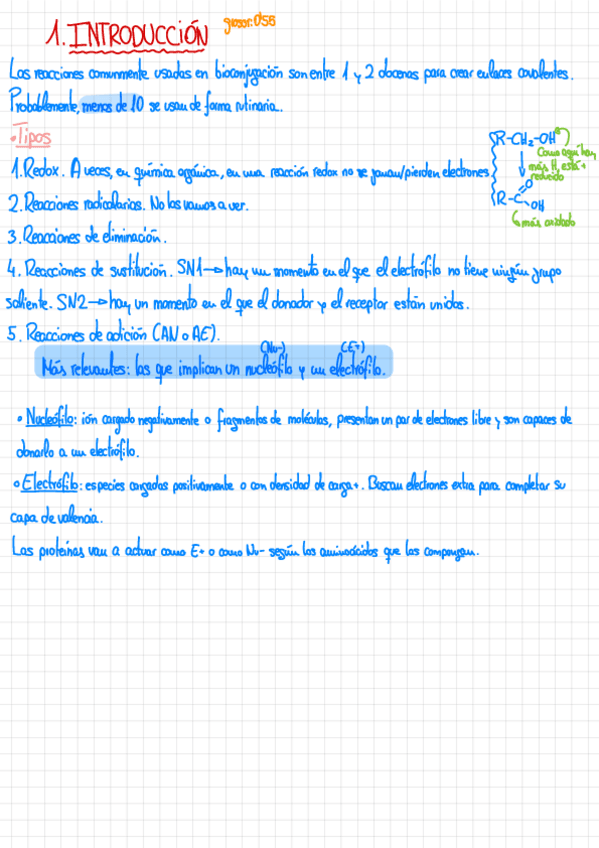 1. INTRODUCCIÓN
grosor: 0'55
Las reacciones comunmente usadas en bioconjugación son entre 1 y 2 docenas para crear enlaces covalentes.
Probablemente, menos de 10 se usan de forma rutinaria.
•Tipos
R-CH₂-OH
Como aquí hay
más H, está +
reducido
1. Redox. A veces, en química orgánica, en una reacción redox no se ganan/pierden electrones
R-C
O
OH
más oxidado
2. Reacciones radicalarias. No las vamos a ver.
3. Reacciones de eliminación.
4. Reacciones de sustitución. SN1→ hay un momento en el que el electrófilo no tiene ningún grupo
saliente. SN2→ hay un momento en el que el donador y el receptor están unidos.
5. Reacciones de adición (AN o AE).
(Nu-) (E+)
Más relevantes: las que implican un nucleófilo y un electrófilo.
• Nucleófilo: ión cargado negativamente o fragmentos de moléculas, presentan un par de electrones libre y son capaces de
donarlo a un electrófilo.
• Electrófilo: especies cargadas positivamente o con densidad de carga +. Buscan electrones extra para completar su
capa de valencia.
Las proteínas van a actuar como E+ o como Nu- según los aminoácidos que las compongan.